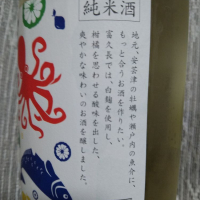 純米酒
地元、安芸津の牡蠣や瀬戸内の魚介に、
もっと合うお酒を作りたい。
富久長では、白麹を使用し、
柑橘を思わせる酸味を出した、
爽やかな味わいのお酒を醸しました。